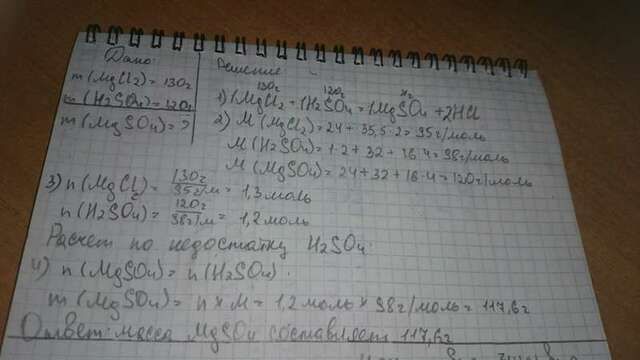 Дано:
m(MgCl2) = 130г
m(H2SO4) = 120г
m(MgSO4) = ?
Решение:
130г 120г xг
1) 1MgCl2 + 1H2SO4 = 1MgSO4 + 2HCl
2) M(MgCl2) = 24 + 35,5·2 = 95г/моль
M(H2SO4) = 1·2 + 32 + 16·4 = 98г/моль
M(MgSO4) = 24 + 32 + 16·4 = 120г/моль
3) n(MgCl2) = 130г / 95г/м = 1,3 моль
n(H2SO4) = 120г / 98г/м = 1,2 моль
Расчет по недостатку H2SO4
4) n(MgSO4) = n(H2SO4).
m(MgSO4) = n × M = 1,2 моль × 98г/моль = 117,6г
Ответ: масса MgSO4 составляет 117,6г